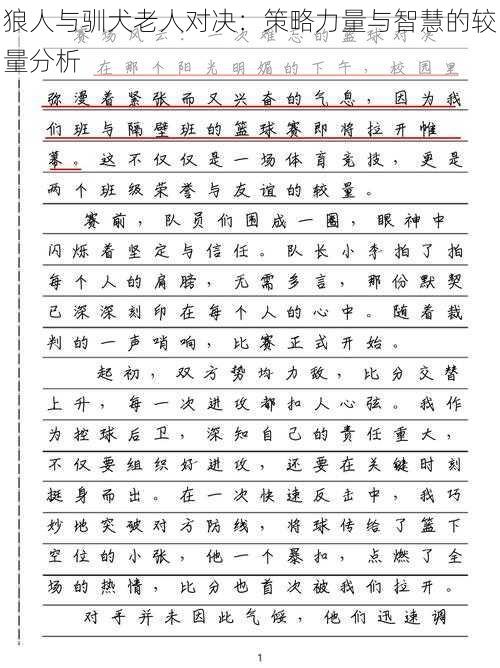 狼人与驯犬老人对决：策略力量与智慧的较
量分析
赛场风云：一次难忘的篮球对决
在那个阳光明媚的下午，校园里
弥漫着紧张而又兴奋的气息，因为我
们班与隔壁班的篮球赛即将拉开帷
幕。这不仅仅是一场体育竞技，更是
两个班级荣誉与友谊的较量。
赛前，队员们围成一圈，眼神中
闪烁着坚定与信任。队长小李拍了拍
每个人的肩膀，无需多言，那份默契
已深深刻印在每个人的心中。随着裁
判的一声哨响，比赛正式开始。
起初，双方势均力敌，比分交替
上升，每一次进攻都扣人心弦。我作
为控球后卫，深知自己的责任重大，
不仅要组织好进攻，还要在关键时刻
挺身而出。在一次快速反击中，我巧
妙地突破对方防线，将球传给了篮下
空位的小张，他一个暴扣，点燃了全
场的热情，比分也首次被我们拉开。
对手并未因此气馁，他们迅速调
1